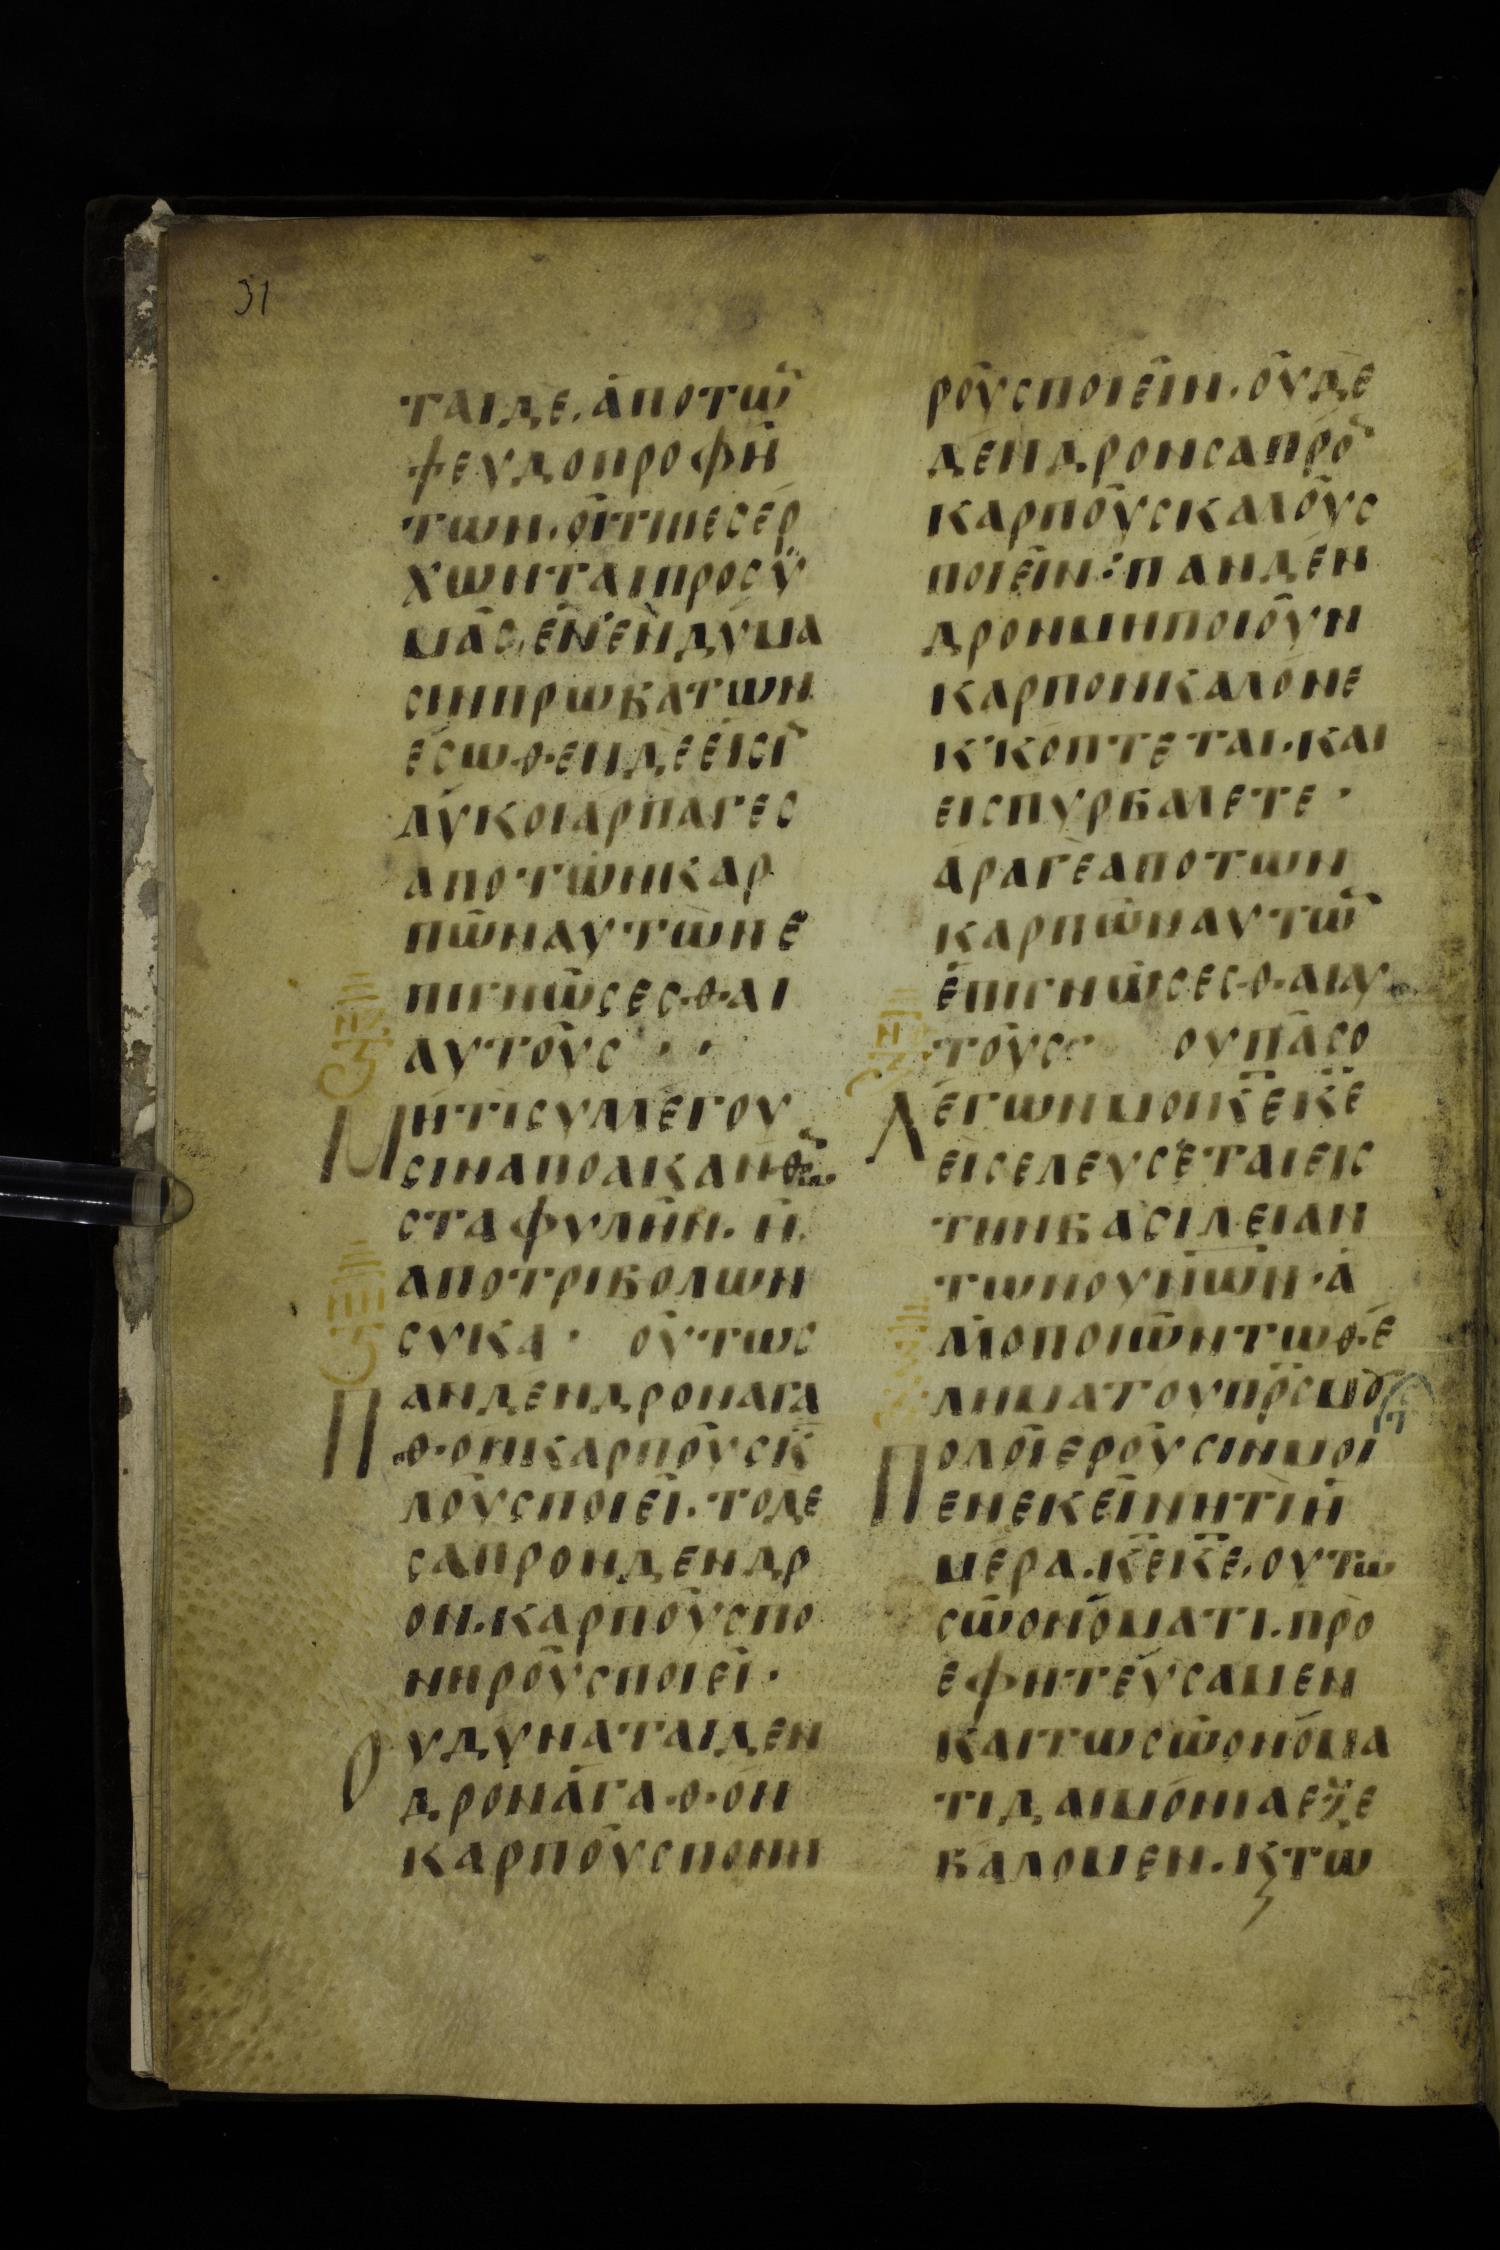 31
ται δε. ἀπο τῶ̅
ψευδοπροφη
των. οἵτινες ἔρ
χωνται προς ὑ
μᾶς, ἐν ἐνδύμα
σιν πρωβατων.
ἔσωθεν δε εἰσῒ
λύκοι ἁρπαγες
απο τῶν καρ
πῶν αυτῶν ε
πιγνῶσεσθαι
αυτοῦς · ·
Μήτι συλλέγου
σιν απο ακανθῶν
σταφυλὴν. ἢ
απο τριβολων
συκα · οὕτως
Παν δένδρον αγα
θον καρποῦς κ
λοῦς ποιεῖ. το δε
σαπρον δενδρ
ον. καρποῦς πο
νηροῦς ποιεῖ ·
Ου δυναται δεν
δρον ἀγαθον
καρποῦς πονη
ροῦς ποιεῖν. οὐδε
δενδρον σαπρο̅
καρποῦς καλοῦς
ποιεῖν : παν δεν
δρον μη ποιοῦν
καρπον καλον ε
κκόπτεται. και
εις πυρ βαλλετε ·
ἄραγε απο των
καρπῶν αυτῶ̅
ἐπιγνῶσεσθαι αυ
τοῦς · ου πᾶς ο
Λέγων μοι κ̅ε κ̅ε
εἰσελευσεται εις
την βασιλειαν
των ουν̅ω̅ν · ἀ
λλ ο ποιῶν τω θε
λημα του π̅ρ̅ς μου
Πολοῖ εροῦσιν μοι
εν εκεῖνη τῒ ἡ
μέρα. κ̅ε κ̅ε, ου τω
σῶ ονόματι. προ
εφητεύσαμεν
και τω σῶ ονόμα
τι δαιμόνια εξε
βάλομεν. κ τω